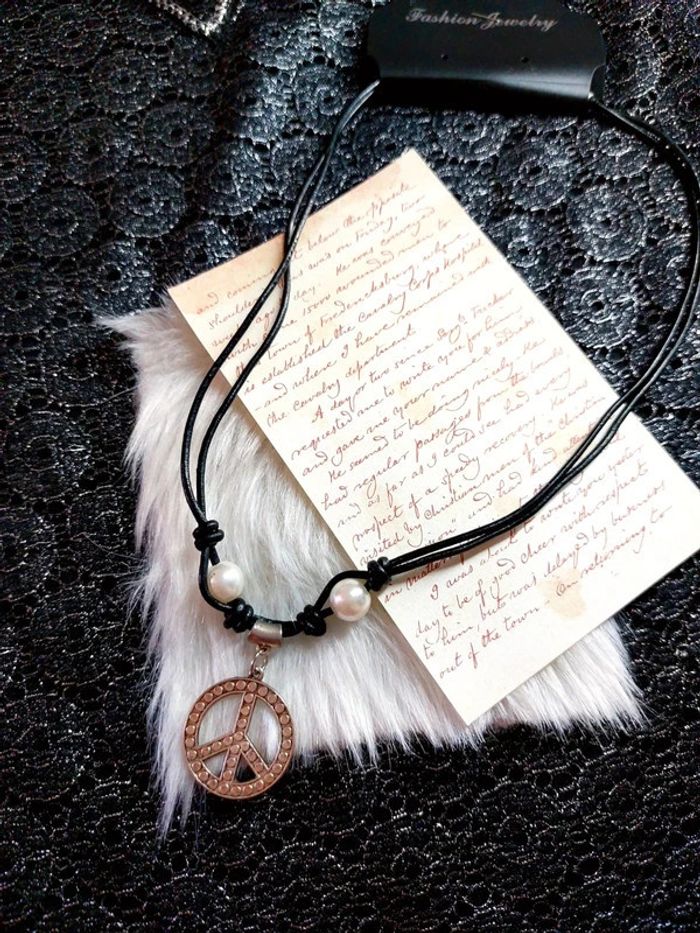 Fashion Jewelry
and comm below the opposite
shoulder was on Friday, two
weeks ago day. He was conveyed
with some 15000 wounded men to
the town of Fredericksburg where
is established the Cavalry Corps Hospital
and where I have remained
the cavalry department.
A day or two since Sergt.
requested me to write you for him
and gave me your name &
He seemed to be doing nicely. He
had regular passages from the bowels,
and as far as I could see had every
prospect of a speedy recovery. He was
visited by Christian men of the "Christian
and had kind
in matter
I was to write you yester
day to be of good cheer with respect
to him, but was delayed by business
out of the town. On returning to